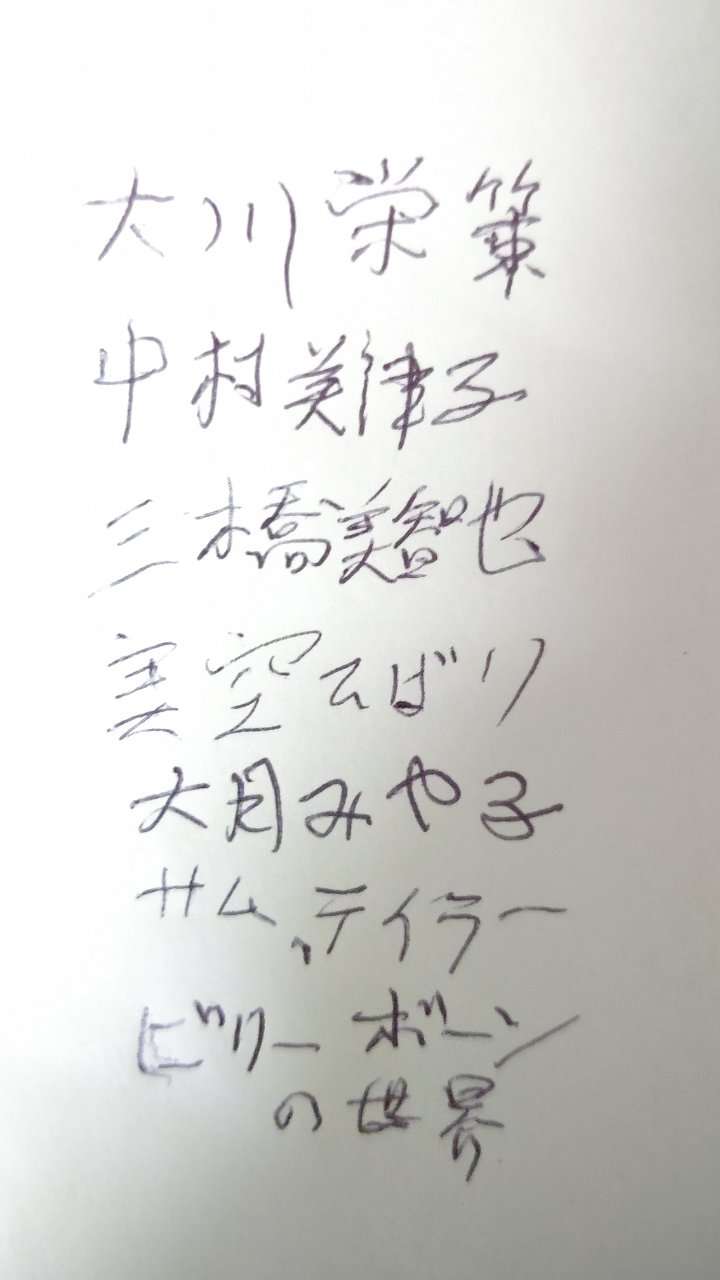 大川栄策
中村美津子
三橋美智也
美空ひばり
大月みや子
サム、テイラー
ビリーボーン
の世界